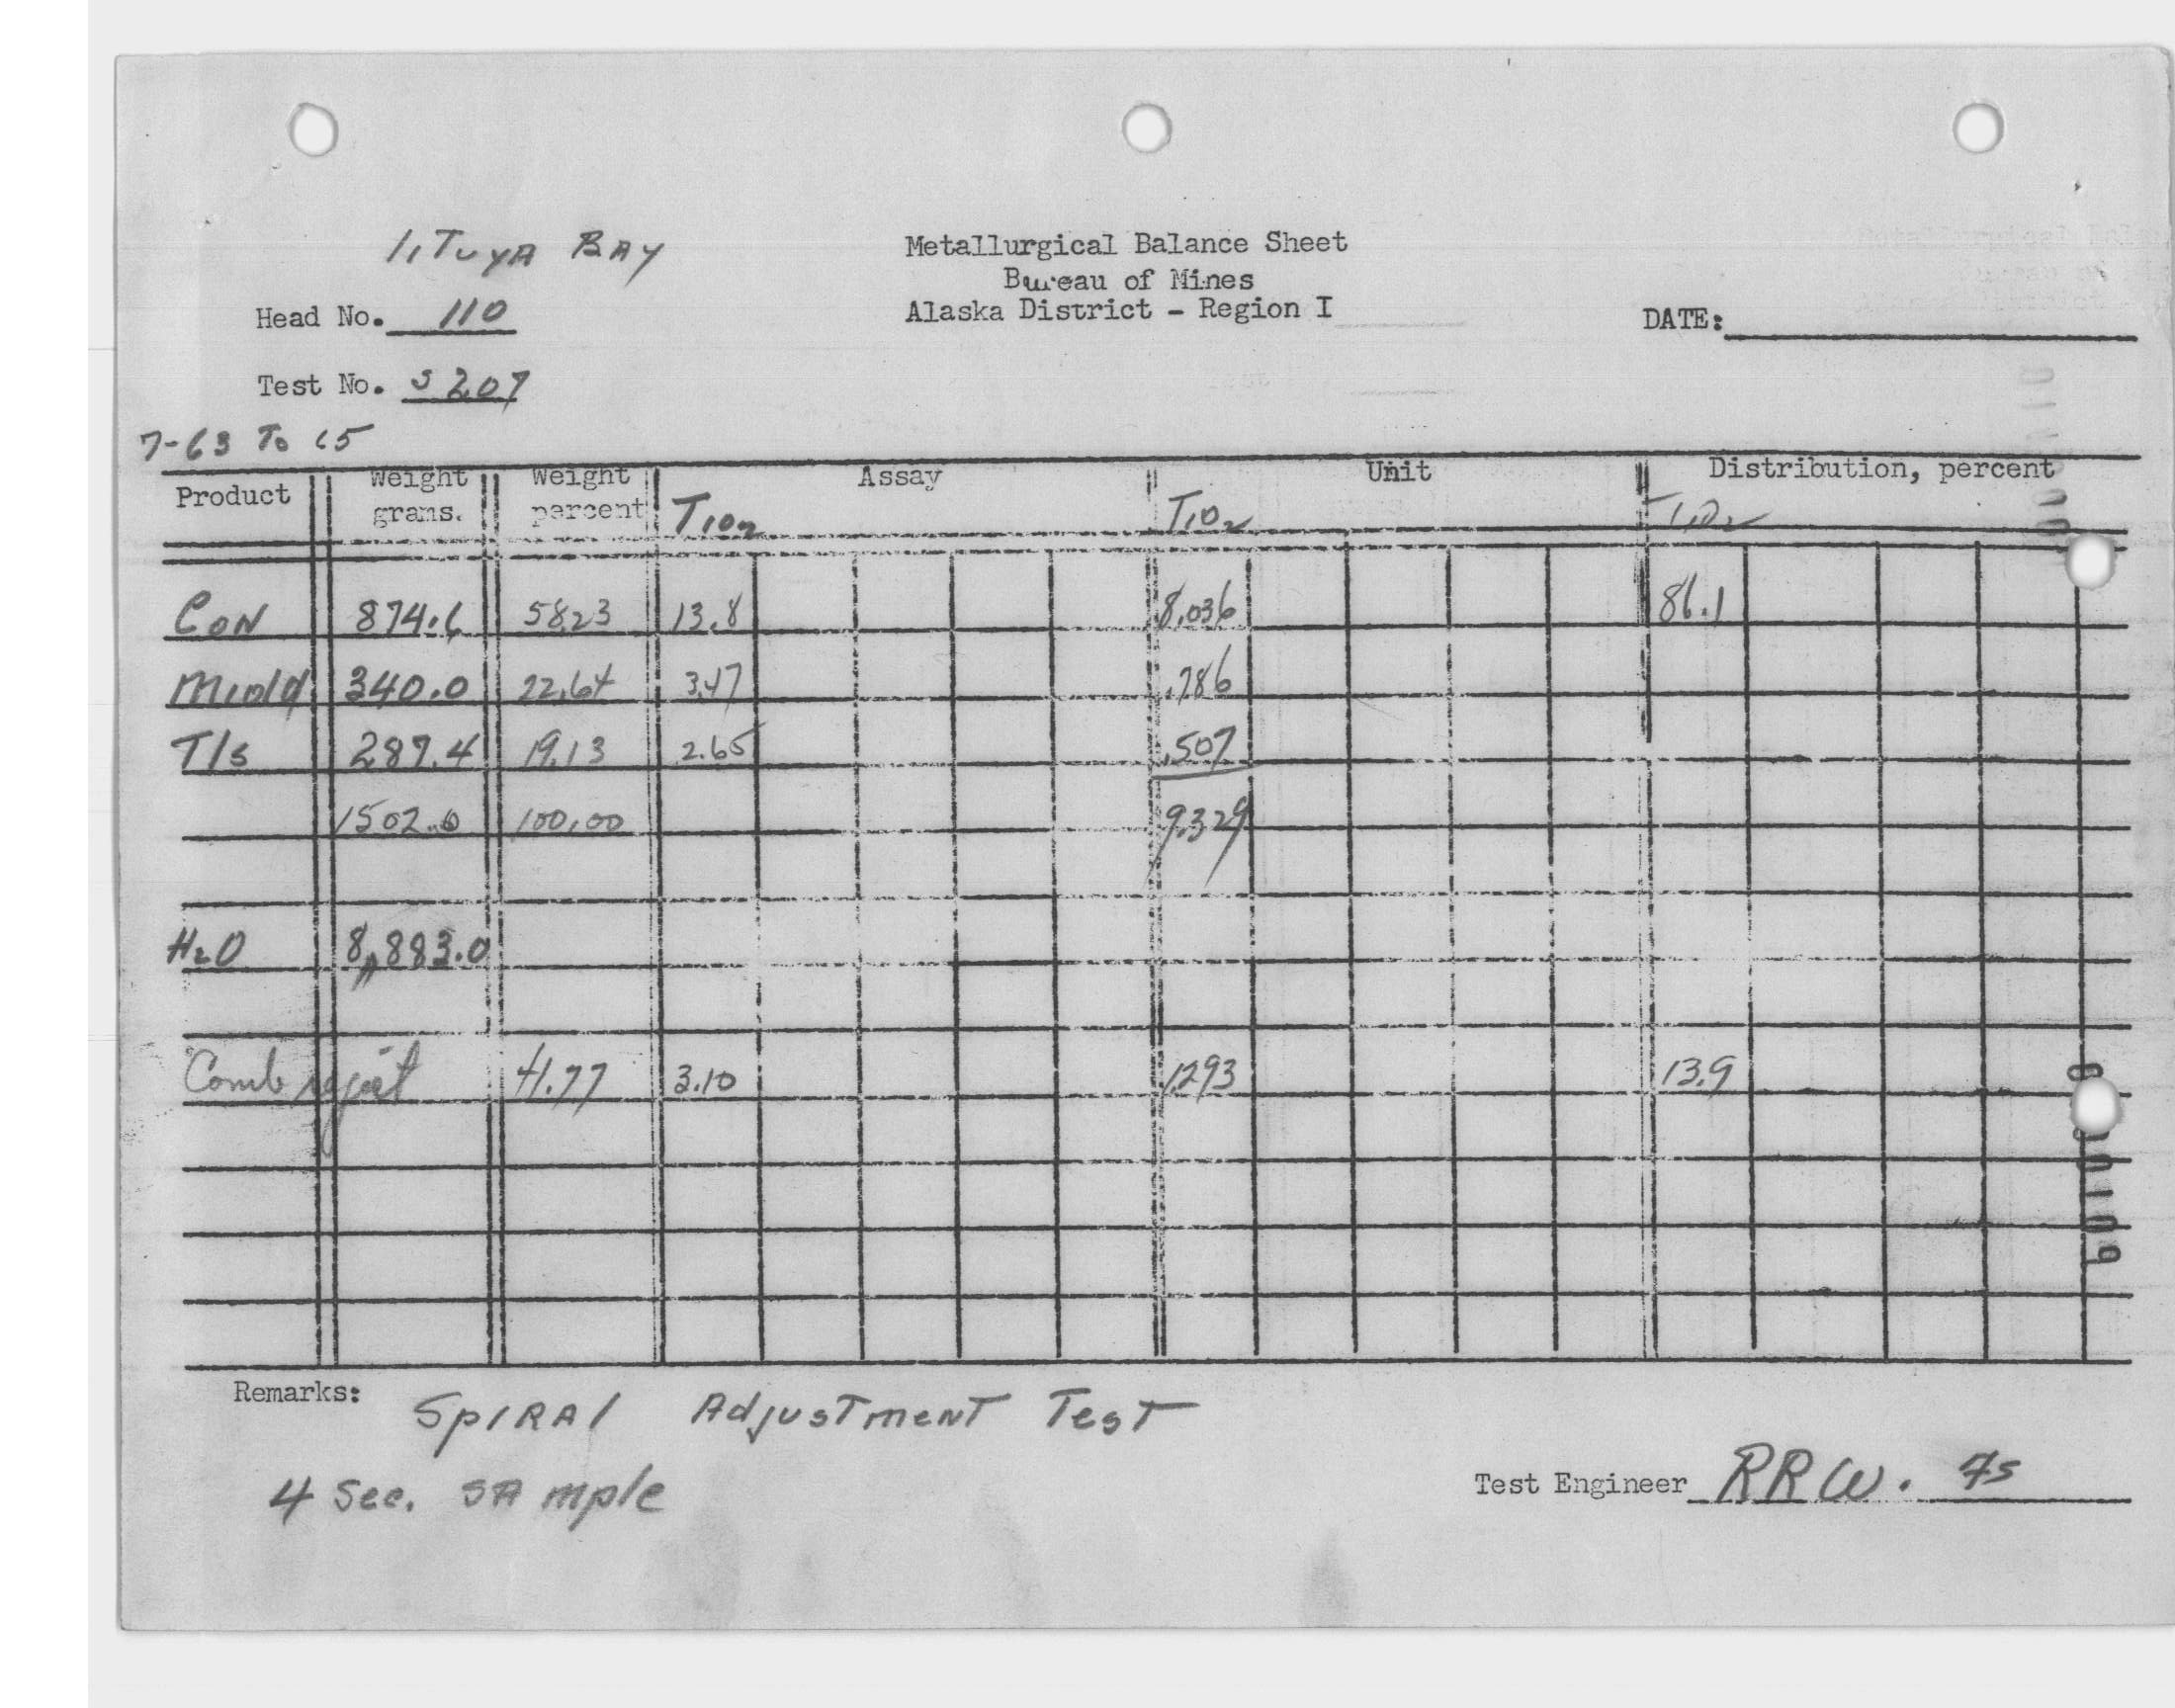 LiTuyA BAy
Metallurgical Balance Sheet
Bureau of Mines
Alaska District - Region I
Head No. 110
DATE:
Test No. S 207
7-63 To 65
Product Weight grams. Weight percent Assay Unit Distribution, percent
TiO2 TiO2 TiO2
CoN 874.6 58.23 13.8 8.036 86.1
Midd 340.0 22.64 3.47 .786
T/s 287.4 19.13 2.65 .507
1502.0 100.00 9.329
H2O 8,883.0
Comb reject 41.77 3.10 1.293 13.9
Remarks: SpIRAl AdjusTmenT TesT
4 Sec. SAmple
Test Engineer RRW.